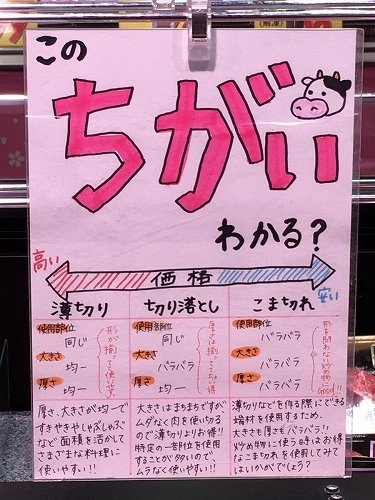 この
ちがい
わかる?
高い
価格
安い
薄切り
使用部位
同じ
大きさ
均一
厚さ
均一
切り落とし
使用部位
同じ
大きさ
バラバラ
厚さ
均一
こま切れ
使用部位
バラバラ
大きさ
バラバラ
厚さ
バラバラ
厚さ、大きさが均一で
すきやきやしゃぶしゃぶ
など 面積を活かして
さまざまな料理に
使いやすい!!
大きさはまちまちですが
ムダなく肉を使い切る
ので薄切りよりお得!!
特定の一部位を使用
することが多いので、
ムラなく使いやすい!!
薄切りなどを作る際にできる
端材を使用するため、
大きさも厚さもバラバラ!!
炒め物に使う時はお得
なこま切れを使用してみて
はいかがでしょう?